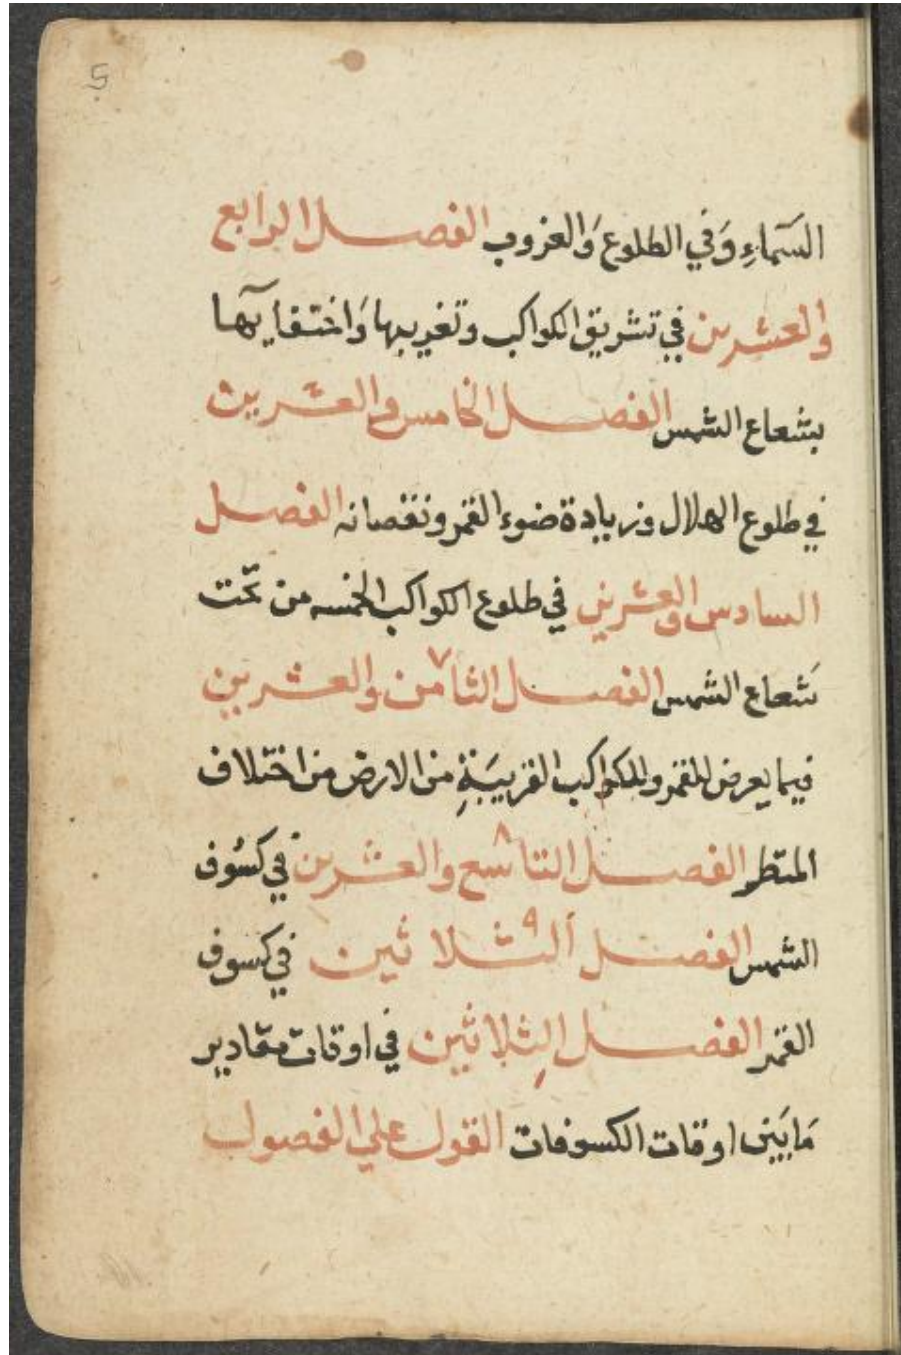 5
السَّماءِ وَفي الطلوع وَالغروب الفصل الرابع
والعشرين في تشريق الكواكب وتغريبها وَاختفايٓها
بشعاع الشمس الفصل الخامس والعشرين
في طلوع الهلال وزيادة ضوء القمر ونقصانه الفصل
السادس والعشرين في طلوع الكواكب الخمسه من تحت
شعاع الشمس الفصل الثامن ٧ والعشرين
فيما يعرض للقمر وللكواكب القريبَةِ من الارض من اختلاف
المنظر الفصل التاسع ٨ والعشرين في كسُوف
الشمس الفصل الثلاثين ٩ في كسوف
القمر الفصل الثلاثين في اوقات مقادير
مَابَين اوقات الكسوفات القول علي الفصول